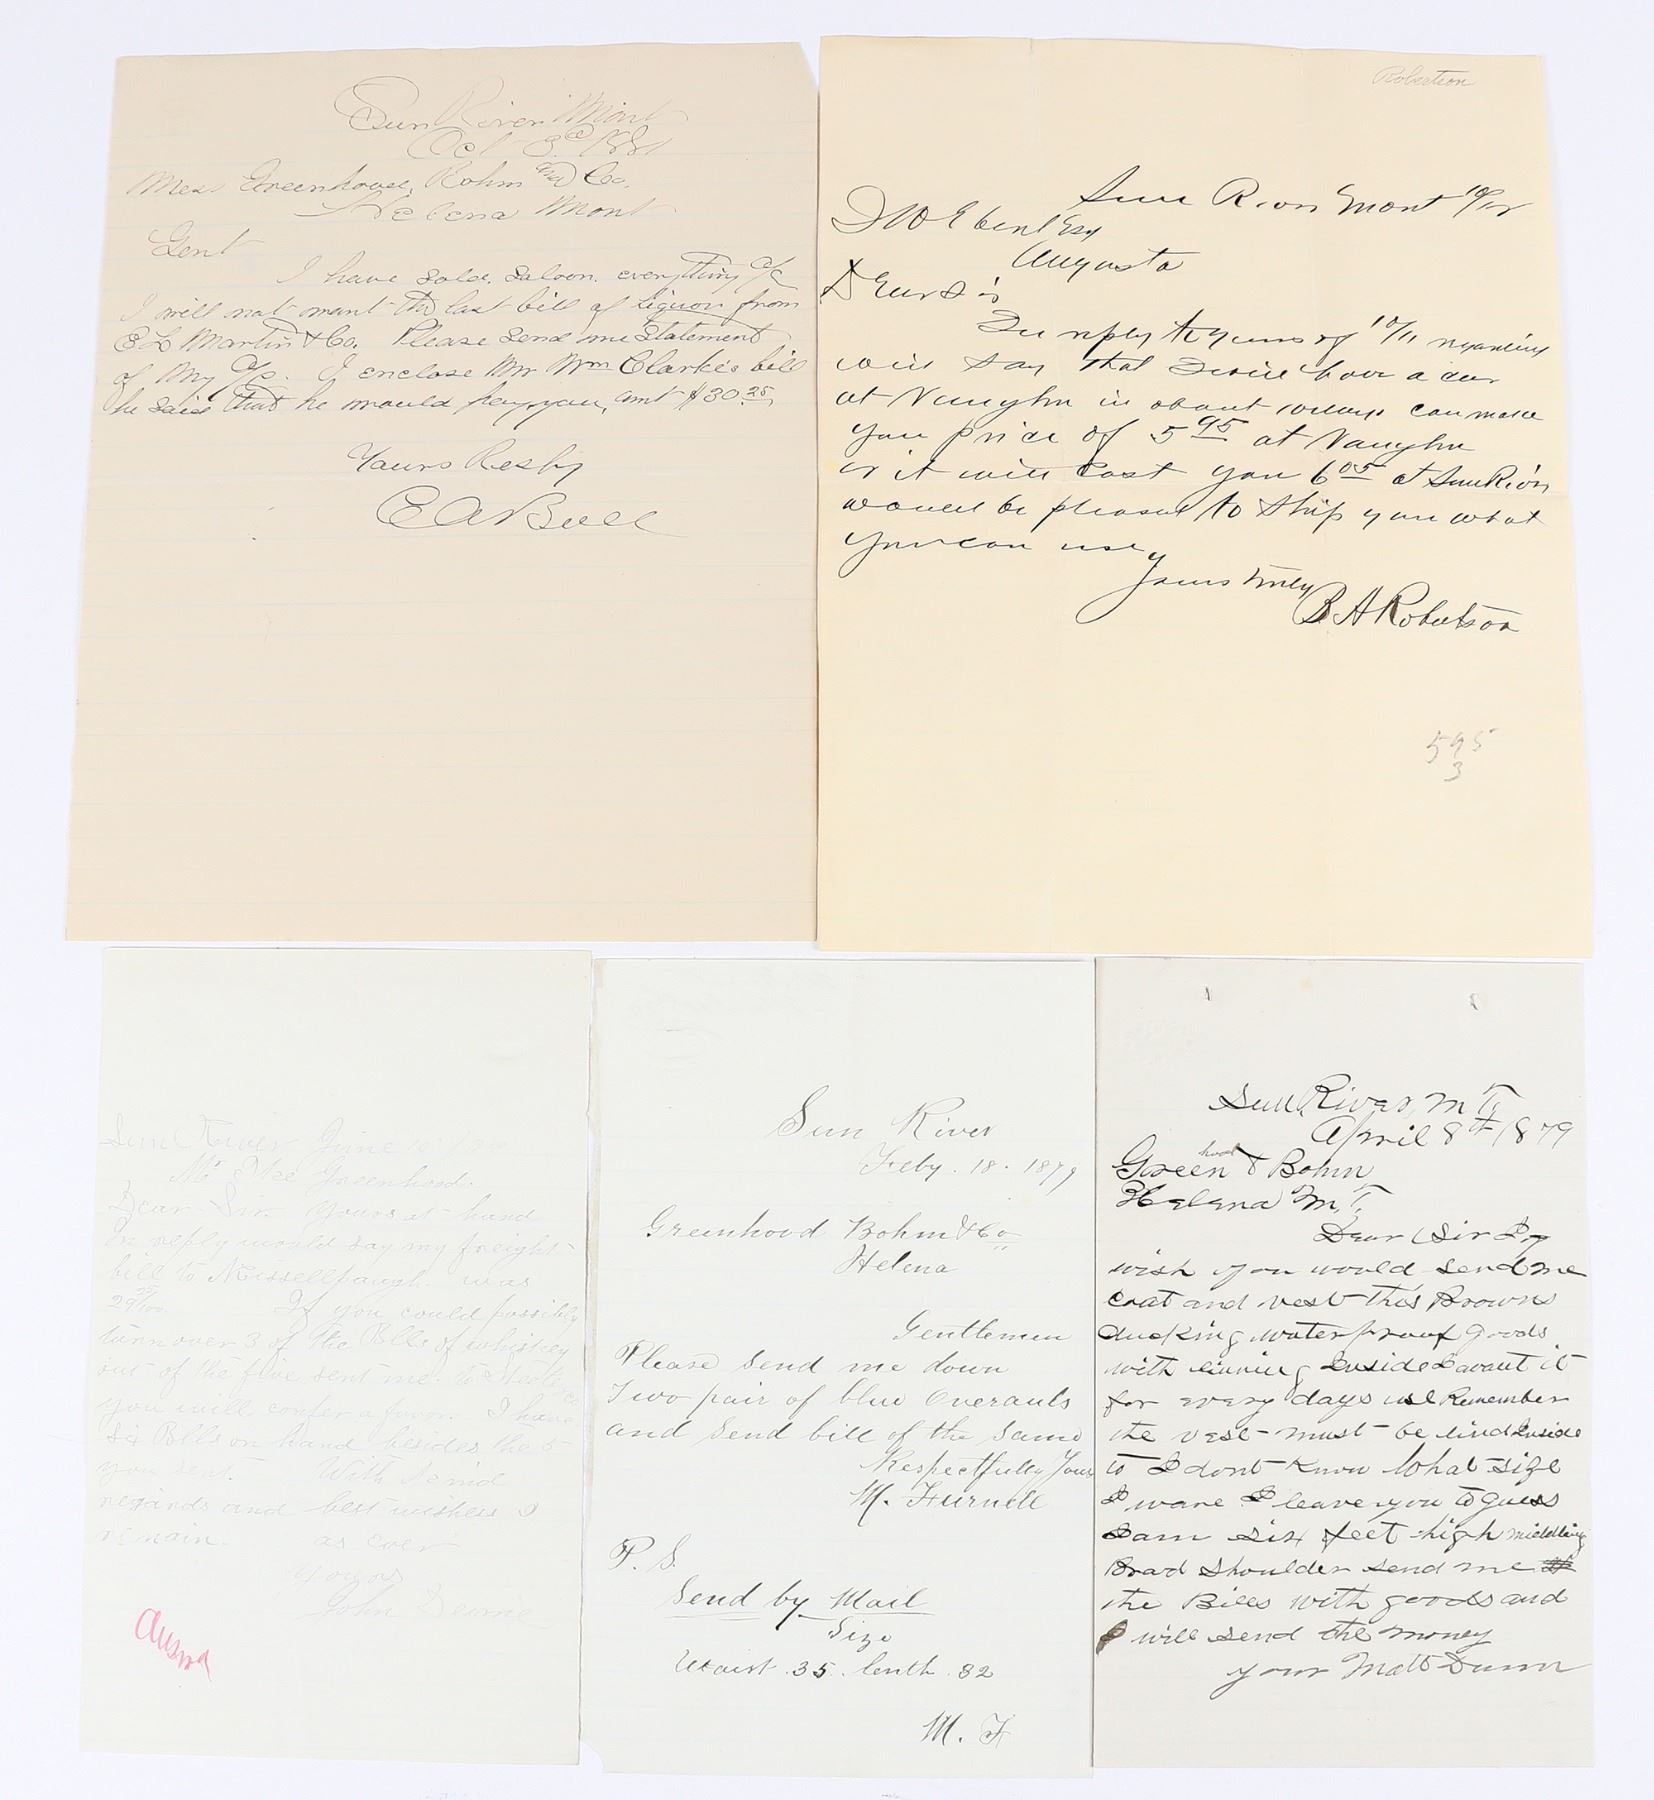 Sun River Mont
Oct 3d 1881
Mess Greenhood, Bohm and Co.
Helena Mont
Gent
I have sold saloon. everything a/c
I will not want the last bill of liquor from
E L Martin & Co. Please send me statement
of my a/c. I enclose Mr Wm Clarke's bill
he said that he would pay you, amt $30.25
Yours Resply
E A Bull
Robertson
Sun River Mont 10/12
Esq
Augusta
Dear Sir
In reply to yours of 10/11 regarding
will say that I will have a car
at Vaughn in about 10 days can make
you price of 5 95 at Vaughn
or it will cost you 6 05 at Sun River
would be pleased to ship you what
you can use
yours truly
B A Robertson
595
3
Sun River June
Mr Greenhood.
Dear Sir yours at hand
In reply would say my freight
bill to Missellpaugh was
If you could possibly
turn over 3 of the Blls of whiskey
out of the five sent me to
you will confer a favor. I have
six Blls on hand besides the 5
you sent. With kind
regards and best wishes I
remain. as ever
yours
John
Ansrd
Sun River
Feby. 18. 1879
Greenhood Bohm & Co
Helena
Gentlemen
Please send me down
Two pair of blue Overauls
and send bill of the same
Respectfully Yours
M. Furnell
P. S.
Send by Mail
Size
Waist. 35. lenth. 32
M. F
Sun River, M T,
April 8th 1879
Green hood & Bohm
Helena M, T,
Dear Sir I
wish you would send me
coat and vest this Browns
ducking waterproof goods
with linning Inside I want it
for every days use Remember
the vest must be lind Inside
to I dont know What size
I ware I leave you to guess
I am six feet high middling
Brad shoulder send me
the Bills with goods and
I will send the money
your Matt Dunn